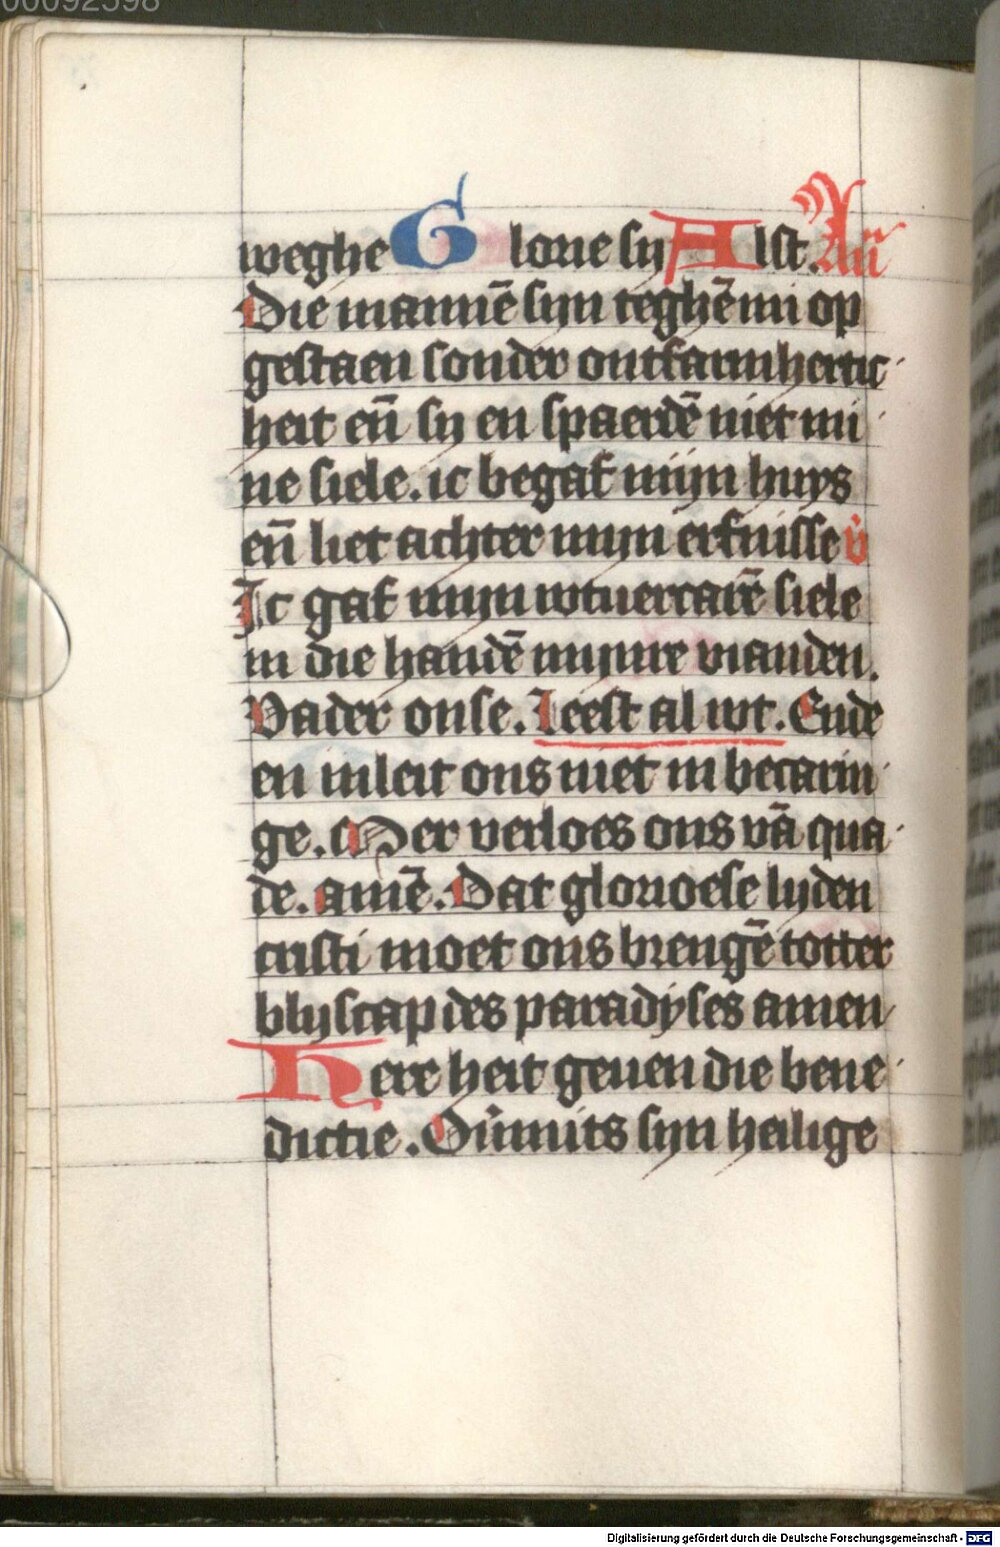 00092598
weghe Glorie sy Alst. An̄
Die mannē sijn teghē mi op
gestaen sonder ontfarmhertic
heit en̄ sij en spaerdē niet mi
ne siele. ic begaf mijn huys
en̄ liet achter mijn erfnisse v̓
Ic gaf mijn wtuercarē siele
in die handē mijnre vianden.
Vader onse. Leest al wt. Ende
en inleit ons niet in becarin
ge. Mer verloes ons vā qua
de. amē. Dat glorioese lijden
cristi moet ons brengē totter
blijscap des paradijses amen
Here heit geuen die bene
dictie. Ou̓mits sijn heilige
Digitalisierung gefördert durch die Deutsche Forschungsgemeinschaft - DFG